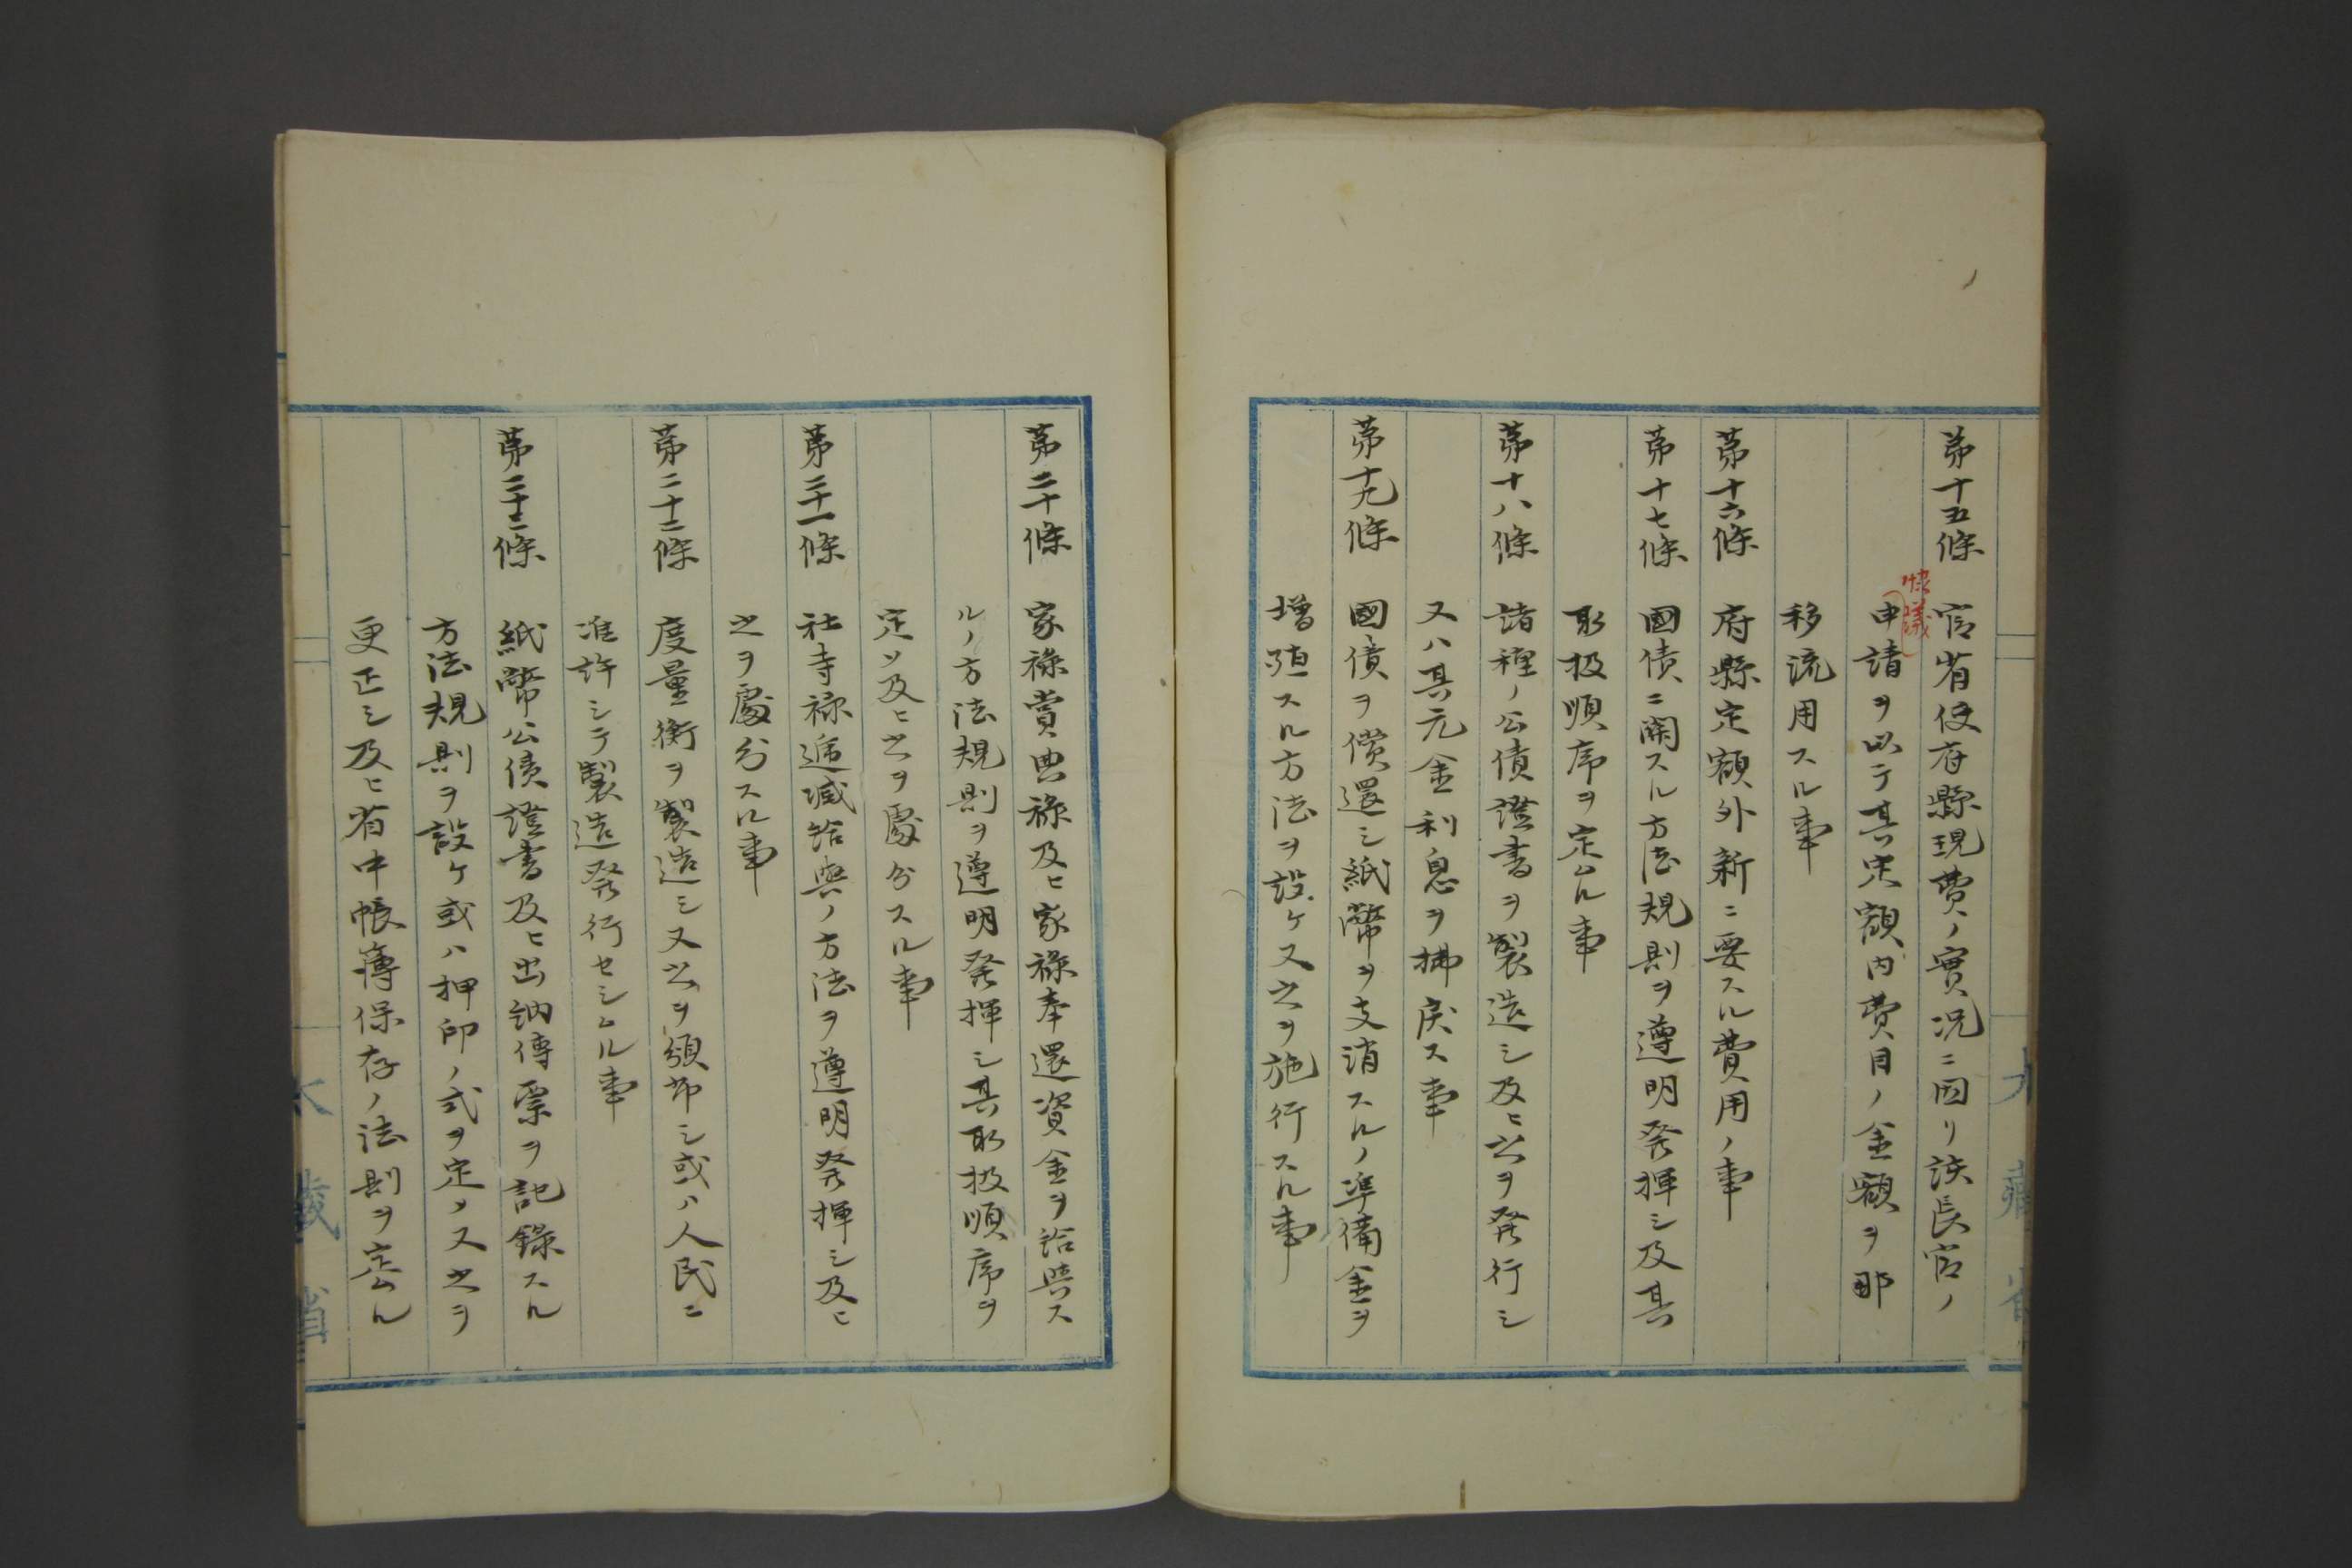 第十五條 官省使府縣現費ノ實况ニ因リ該長官ノ
協議
申請ヲ以テ其定額内費目ノ金額ヲ那
移流用スル事
第十六條 府縣定額外新ニ要スル費用ノ事
第十七條 國債ニ関スル方法規則ヲ遵明発揮シ及其
取扱順序ヲ定ムル事
第十八條 諸種ノ公債證書ヲ製造シ及ヒ之ヲ発行シ
又ハ其元金利息ヲ拂戻ス事
第十九條 國債ヲ償還シ紙幣ヲ支消スルノ凖備金ヲ
増殖スル方法ヲ設ケ又之ヲ施行スル事
第二十條 家禄賞典禄及ヒ家禄奉還資金ヲ給與ス
ルノ方法規則ヲ遵明発揮シ其取扱順序ヲ
定メ及ヒ之ヲ處分スル事
第二十一條 社寺禄逓减給與ノ方法ヲ遵明発揮シ及ヒ
之ヲ處分スル事
第二十二條 度量衡ヲ製造シ又之ヲ頒布シ或ハ人民ニ
准許シテ製造発行セシムル事
第二十三條 紙幣公債證書及ヒ出納傳票ヲ記錄スル
方法規則ヲ設ケ或ハ押印ノ式ヲ定メ又之ヲ
更正シ及ヒ省中帳簿保存ノ法則ヲ定ムル